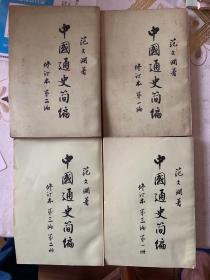 范文澜著
中國通史简编
修订本第二编
范文澜著
中國通史简编
修订本第一编
范文澜著
中國通史简编
修订本第三编第二册
范文澜著
中國通史简编
修订本第三编第一册